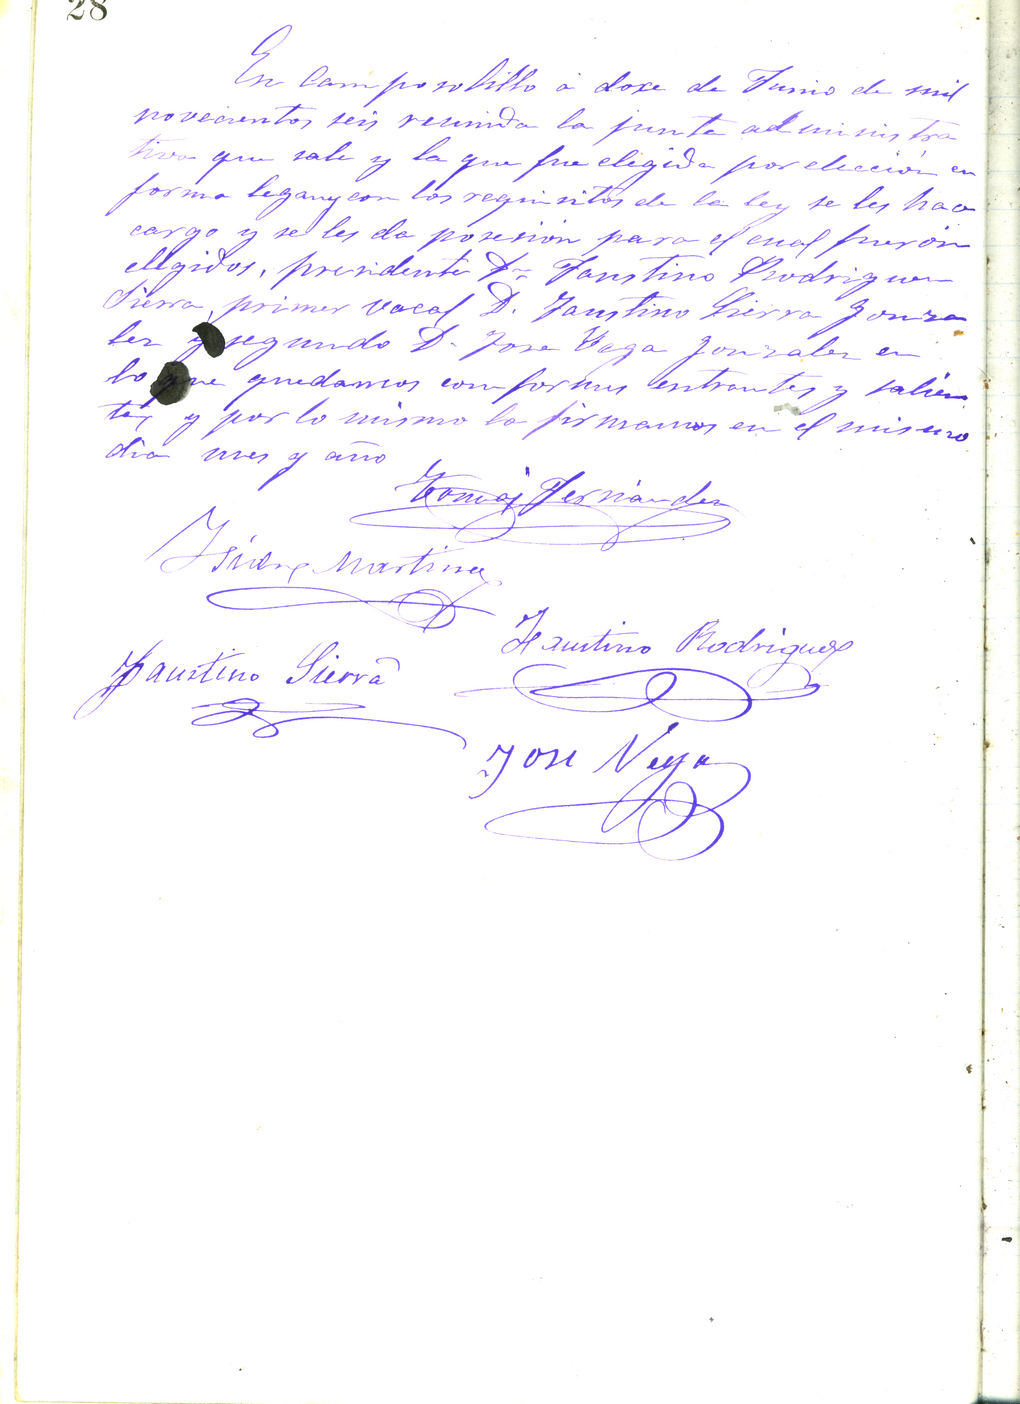 28
En Camposolillo á doxe de Junio de mil
novecientos seis reunida la junta administra
tiva que sale y la que fue eligida por elección en
forma legany con los requisitos de la ley se les hace
cargo y se les da posesion para el cual fuerón
eligidos, presidente Dn Faustino Rodriguez
Sierra, primer vocal D. Faustino Sierra Gonza
lez y segundo D. Jose Vega Gonzalez en
lo que quedamos conformes entrantes y salien
tes y por lo mismo la firmamos en el mismo
dia mes y año
Tomás Fernandez
Isidro Martinez
Faustino Rodriguez
Faustino Sierra
Jose Vega